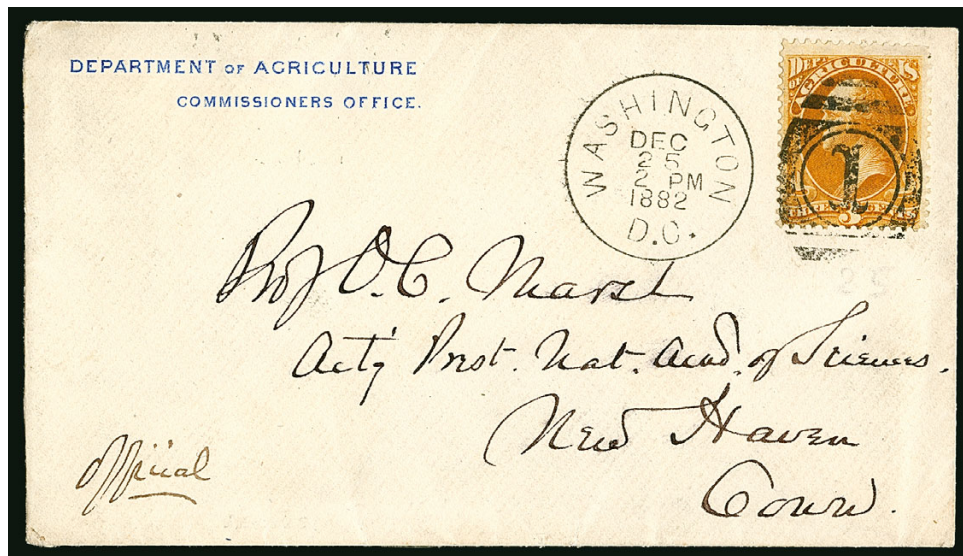 DEPARTMENT OF AGRICULTURE
COMMISSIONERS OFFICE.
WASHINGTON
DEC
25
2 PM
1882
D.C.
AGRICULTURE
1
3
Prof O. C. Marsh
Actg Prest. Nat. Acad. of Sciences.
New Haven
Conn.
Official